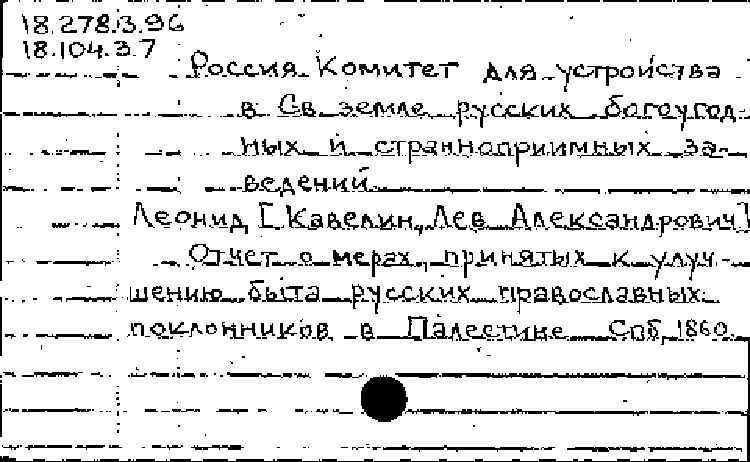 18.278.3.96
18.104.3.7
Россия. Комитет для устройства
в Св. земле русских богоугод-
ных и странноприимных за-
ведений
Леонид [Кавелин, Лев Александрович]
Отчет о мерах, принятых к улуч-
шению быта русских православных
поклонников в Палестине Спб, 1860.